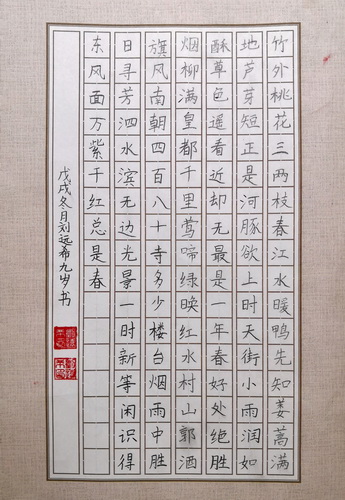 竹外桃花三两枝春江水暖鸭先知蒌蒿满
地芦芽短正是河豚欲上时天街小雨润如
酥草色遥看近却无最是一年春好处绝胜
烟柳满皇都千里莺啼绿映红水村山郭酒
旗风南朝四百八十寺多少楼台烟雨中胜
日寻芳泗水滨无边光景一时新等闲识得
东风面万紫千红总是春
戊戌冬月刘远希九岁书